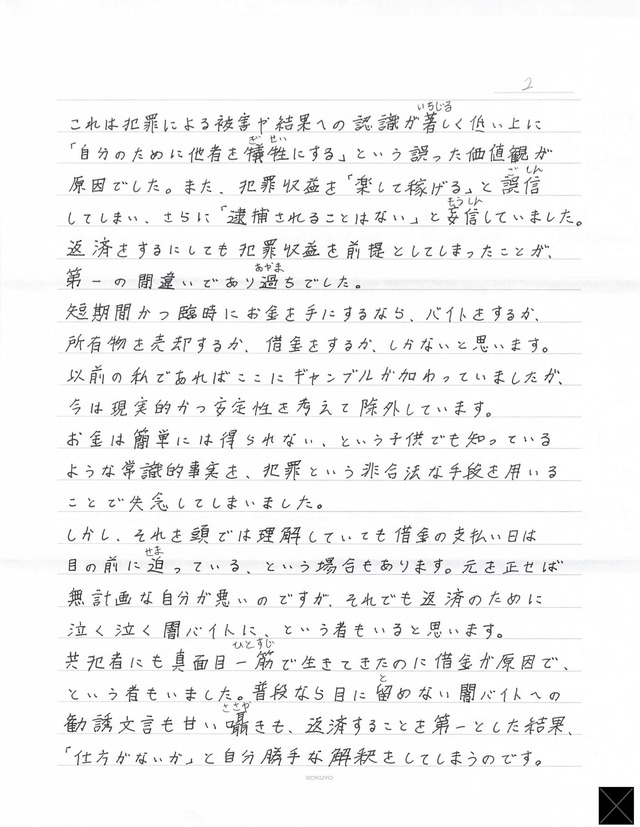 2
これは犯罪による被害や結果への認識が著しく低い上に
「自分のために他者を犠牲にする」という誤った価値観が
原因でした。また、犯罪収益を「楽して稼げる」と誤信
してしまい、さらに「逮捕されることはない」と妄信していました。
返済をするにしても犯罪収益を前提としてしまったことが、
第一の間違いであり過ちでした。
短期間かつ臨時にお金を手にするなら、バイトをするか、
所有物を売却するか、借金をするか、しかないと思います。
以前の私であればここにギャンブルが加わっていましたが、
今は現実的かつ安定性を考えて除外しています。
お金は簡単には得られない、という子供でも知っている
ような常識的事実を、犯罪という非合法な手段を用いる
ことで失念してしまいました。
しかし、それを頭では理解していても借金の支払い日は
目の前に迫っている、という場合もあります。元を正せば
無計画な自分が悪いのですが、それでも返済のために
泣く泣く闇バイトに、という者もいると思います。
共犯者にも真面目一筋で生きてきたのに借金が原因で、
という者もいました。普段なら目に留めない闇バイトへの
勧誘文言も甘い囁きも、返済することを第一とした結果、
「仕方がないか」と自分勝手な解釈をしてしまうのです。
KOKUYO